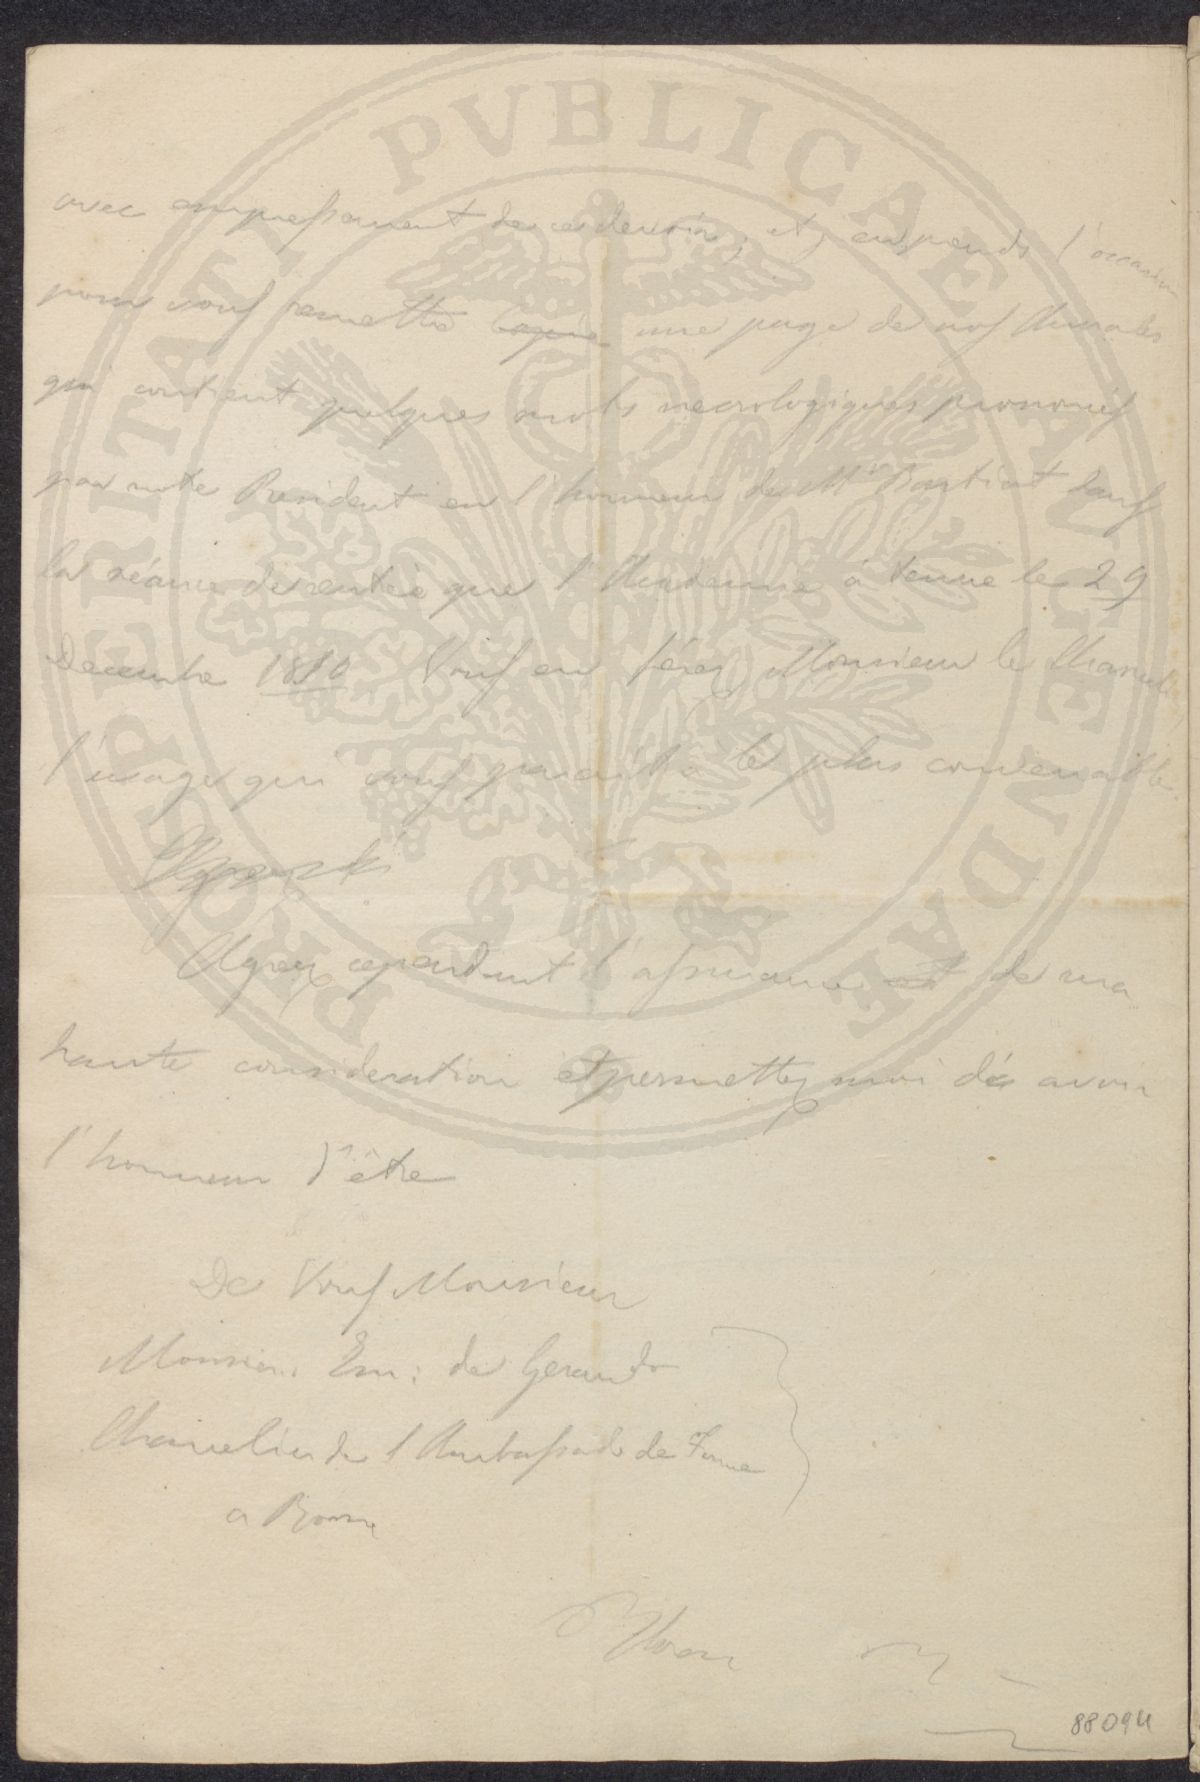 avec empressement de ces devoirs; et j'en prends l'occasion
pour vous remettre copie une page de nos Annales
qui contient quelques mots necrologiques prononcés
par notre President en l'honneur de Mr Bastiat dans
la séance de rentrée que l'Academie à tenue le 29
Decembre 1850 Vous en férez, Monsieur le Chancelier
l'usage qui vous paraitra le plus convenable.
Agréez cependant l'assurance et de ma
haute consideration et permettez moi de avoir
l'honneur d'être
De Vous Monsieur
Monsieur Em: de Gerando
Chancelier de l'Ambassade de France
a Rome
88094
PROSPERITATI PVBLICAE AVGENDAE